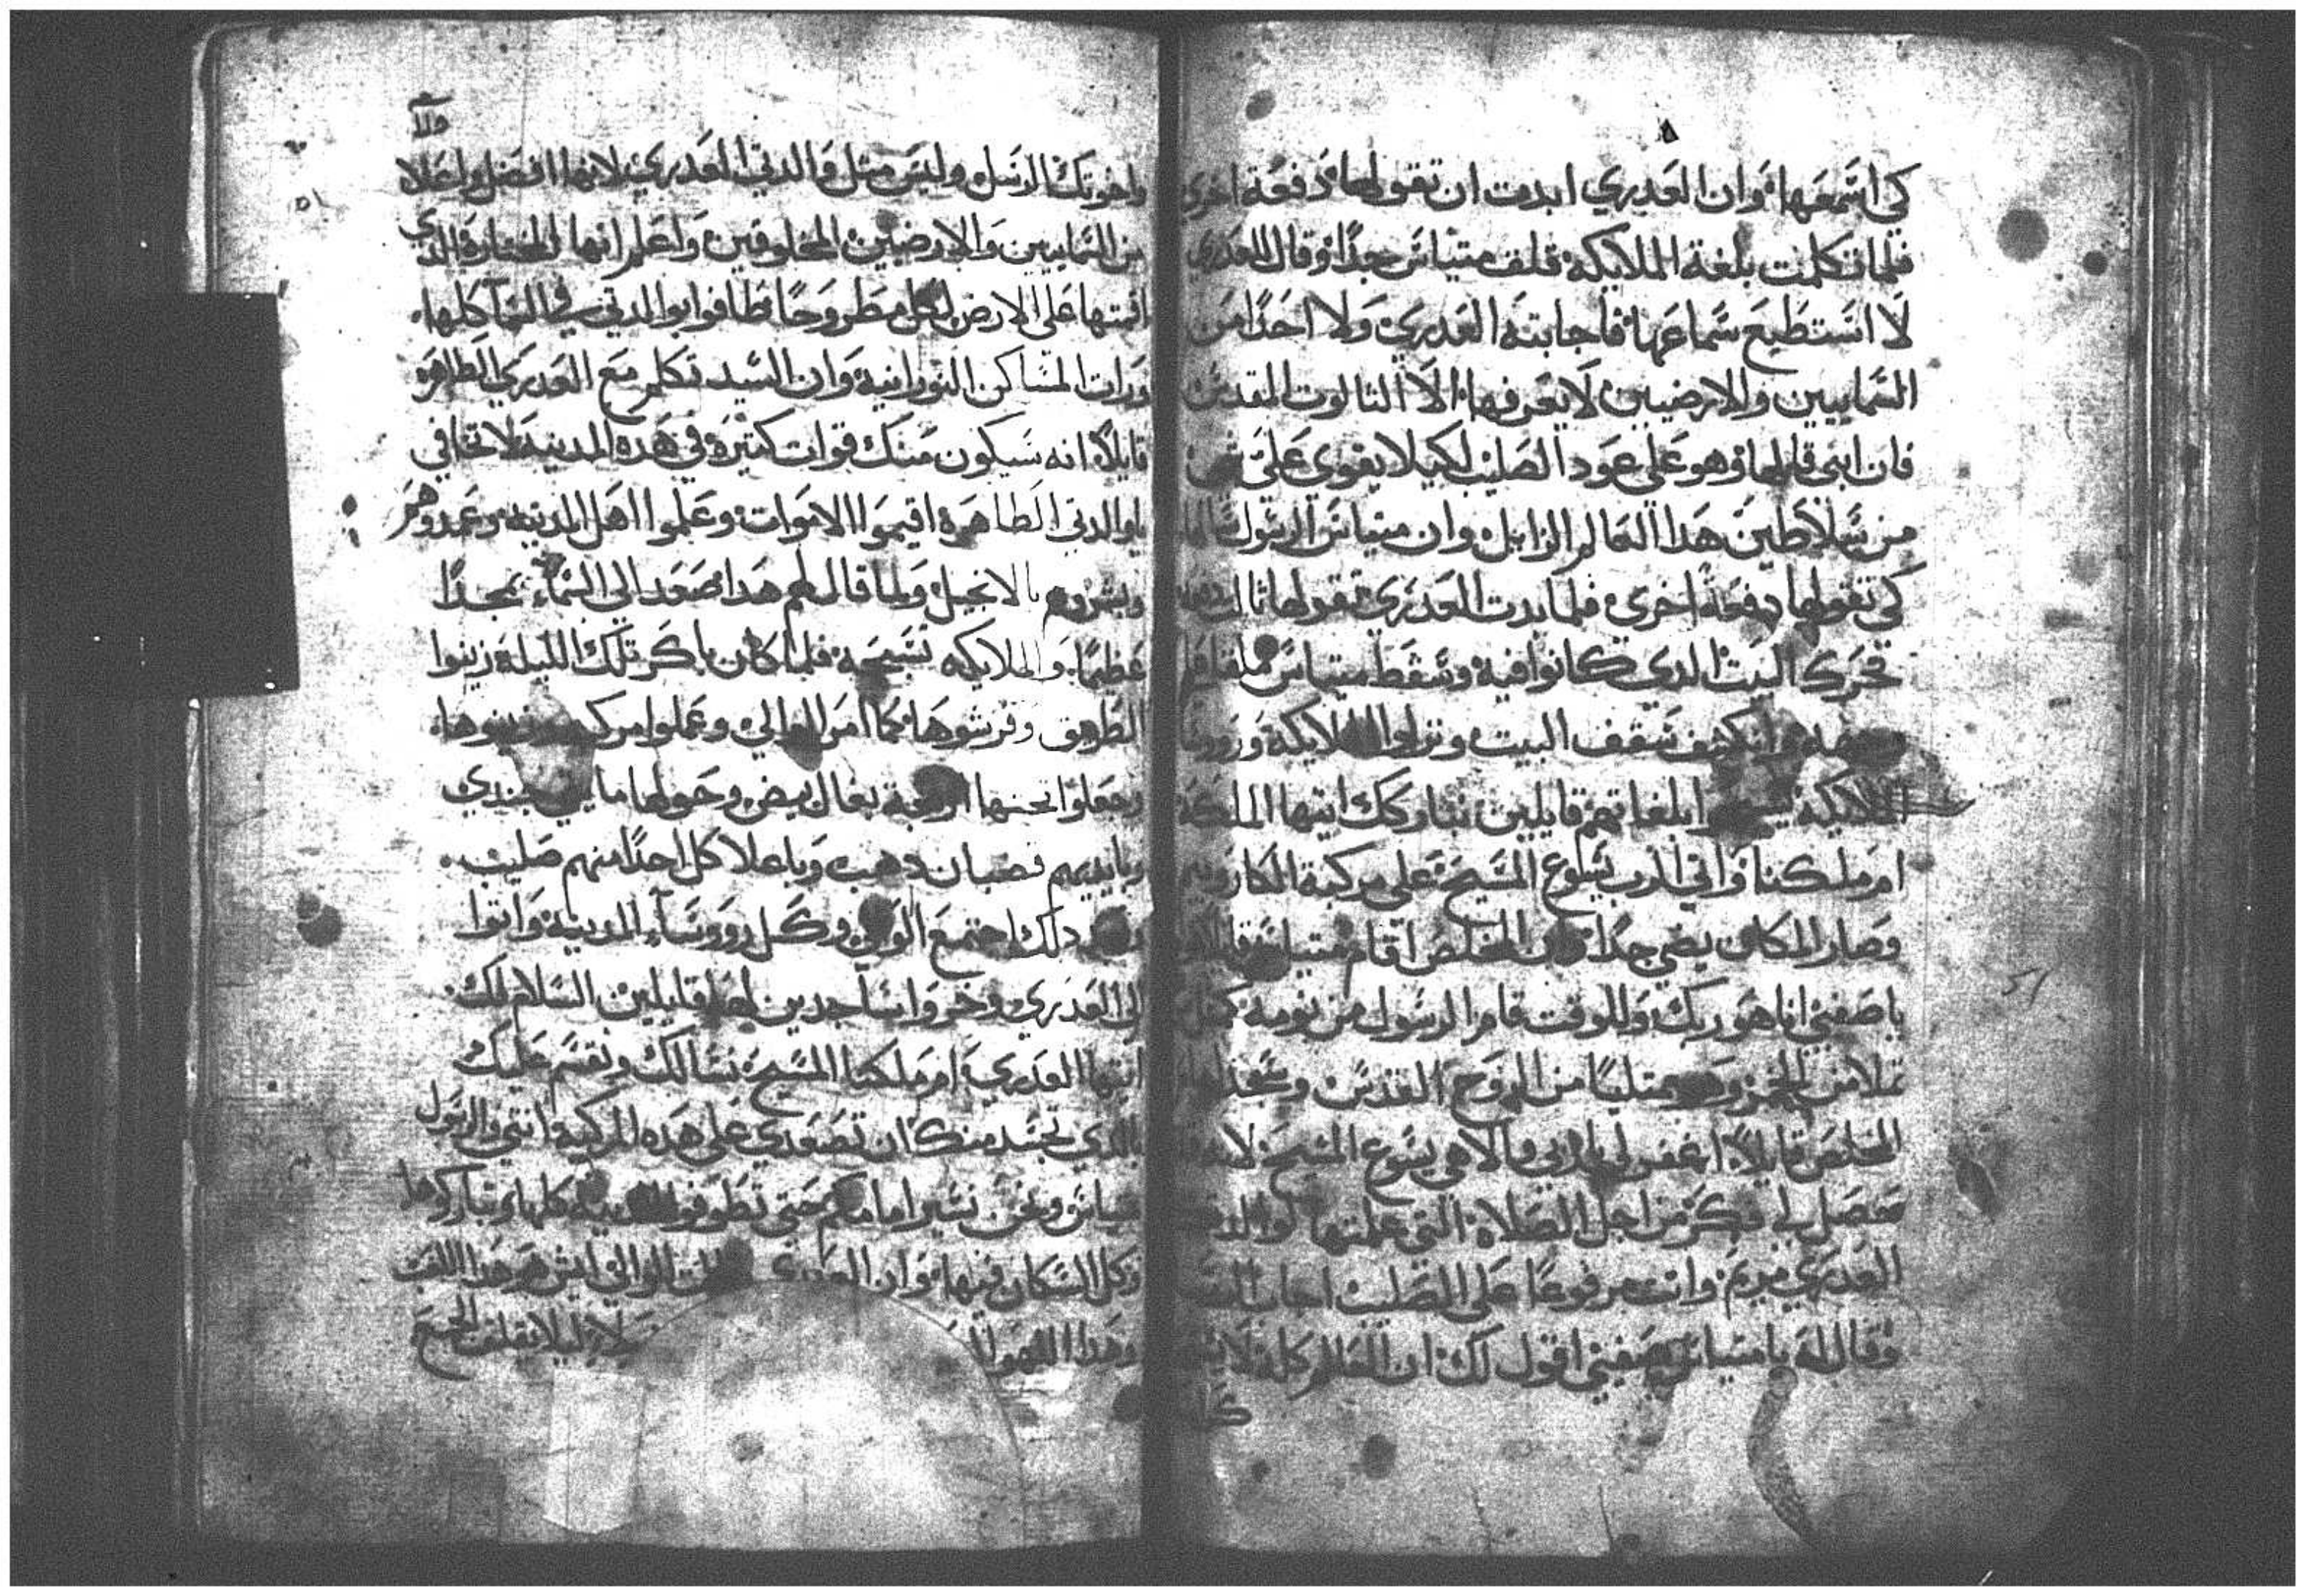 كي اسمعها وان العدري ابدت ان تقولها دفعة اخري
فلما تكلمت بلغة الملايكه قلق متياس جدا وقال للعدري
لا استطيع سماعها فاجابته العدري ولا احدا من
السماييين والارضيين لا يعرفها الا التالوت المقدس
فان ابني قالها وهو علي عود الصليب لكيلا يقوي علي
من سلاطين هدا العالم الزايل وان متياس الرسول سالها
كي تقولها دفعة اخري فلما بدت العدري تقولها تالت دفعه
تحرك البيت الدي كانوا فيه وسقط متياس ملقا علي
وانكشف سقف البيت ونزلوا الملايكة ورووسا
الملايكة بلغاتهم قايلين نباركك ايتها الملكة
ام ملكنا واتي الرب يسوع المسيح علي مركبة الكاروبيم
وصار المكان يضي جدا المخلص اقام متياس قايلا
يا صفيي انا هو ربك وللوقت قام الرسول من نومه كمتل
تملا من الخمر وهو ممتليا من الروح القدس وسجد
المخلص قايلا اغفر لي يا ربي والاهي يسوع المسيح لانه
حصل لي فكر من اجل الصلاة التي علمتها لوالدتك
العدري مريم وانت مرفوعا علي الصليب اجاب
وقال له يا متياس صفيي اقول لك ان العالم كله لا
واخوتك الرسل وليس متل والدتي العدري لانها افضل واعلا
من السماييين والارضيين المخلوقين واعلم انها المختارة الدي
اقمتها علي الارض لكل مطروحا فطافوا بوالدتي في السما كلها
ورات المساكن النورانية وان السيد تكلم مع العدري الطاهره
قايلا انه سيكون منك قوات كتيرة في هده المدينه لا تخافي
يا والدتي الطاهرة اقيموا الاموات وعلموا اهل المدينه وعمدوهم
وبشروهم بالانجيل ولما قال لهم هدا صعد الي السماء بمجدا
عظيما والملايكه تسبحه فلما كان باكر تلك الليلة زينوا
الطريق وفرشوها كما امر الوالي وعملوا مركبه وزينوها
وجعلوا تحتها اربعة بغال بيض وحولها مايتي جندي
وبايديهم قضبان دهب وباعلا كل احدا منهم صليب
دلك اجتمع الوالي وكل رووساء المدينة واتوا
الي العدري وخروا ساجدين لها قايلين السلام لك
ايتها العدري ام ملكنا المسيح نسالك ونقسم عليك
بالدي تجسد منك ان تصعدي علي هده المركبة انتي والرسول
متياس ونحن نسير امامكم حتي تطوفوا المدينة كلها وتباركوها
وكل السكان فيها وان العدري قالت للوالي ايش هو هدا اللفت
وهدا لان ليلا يقلق الجمع